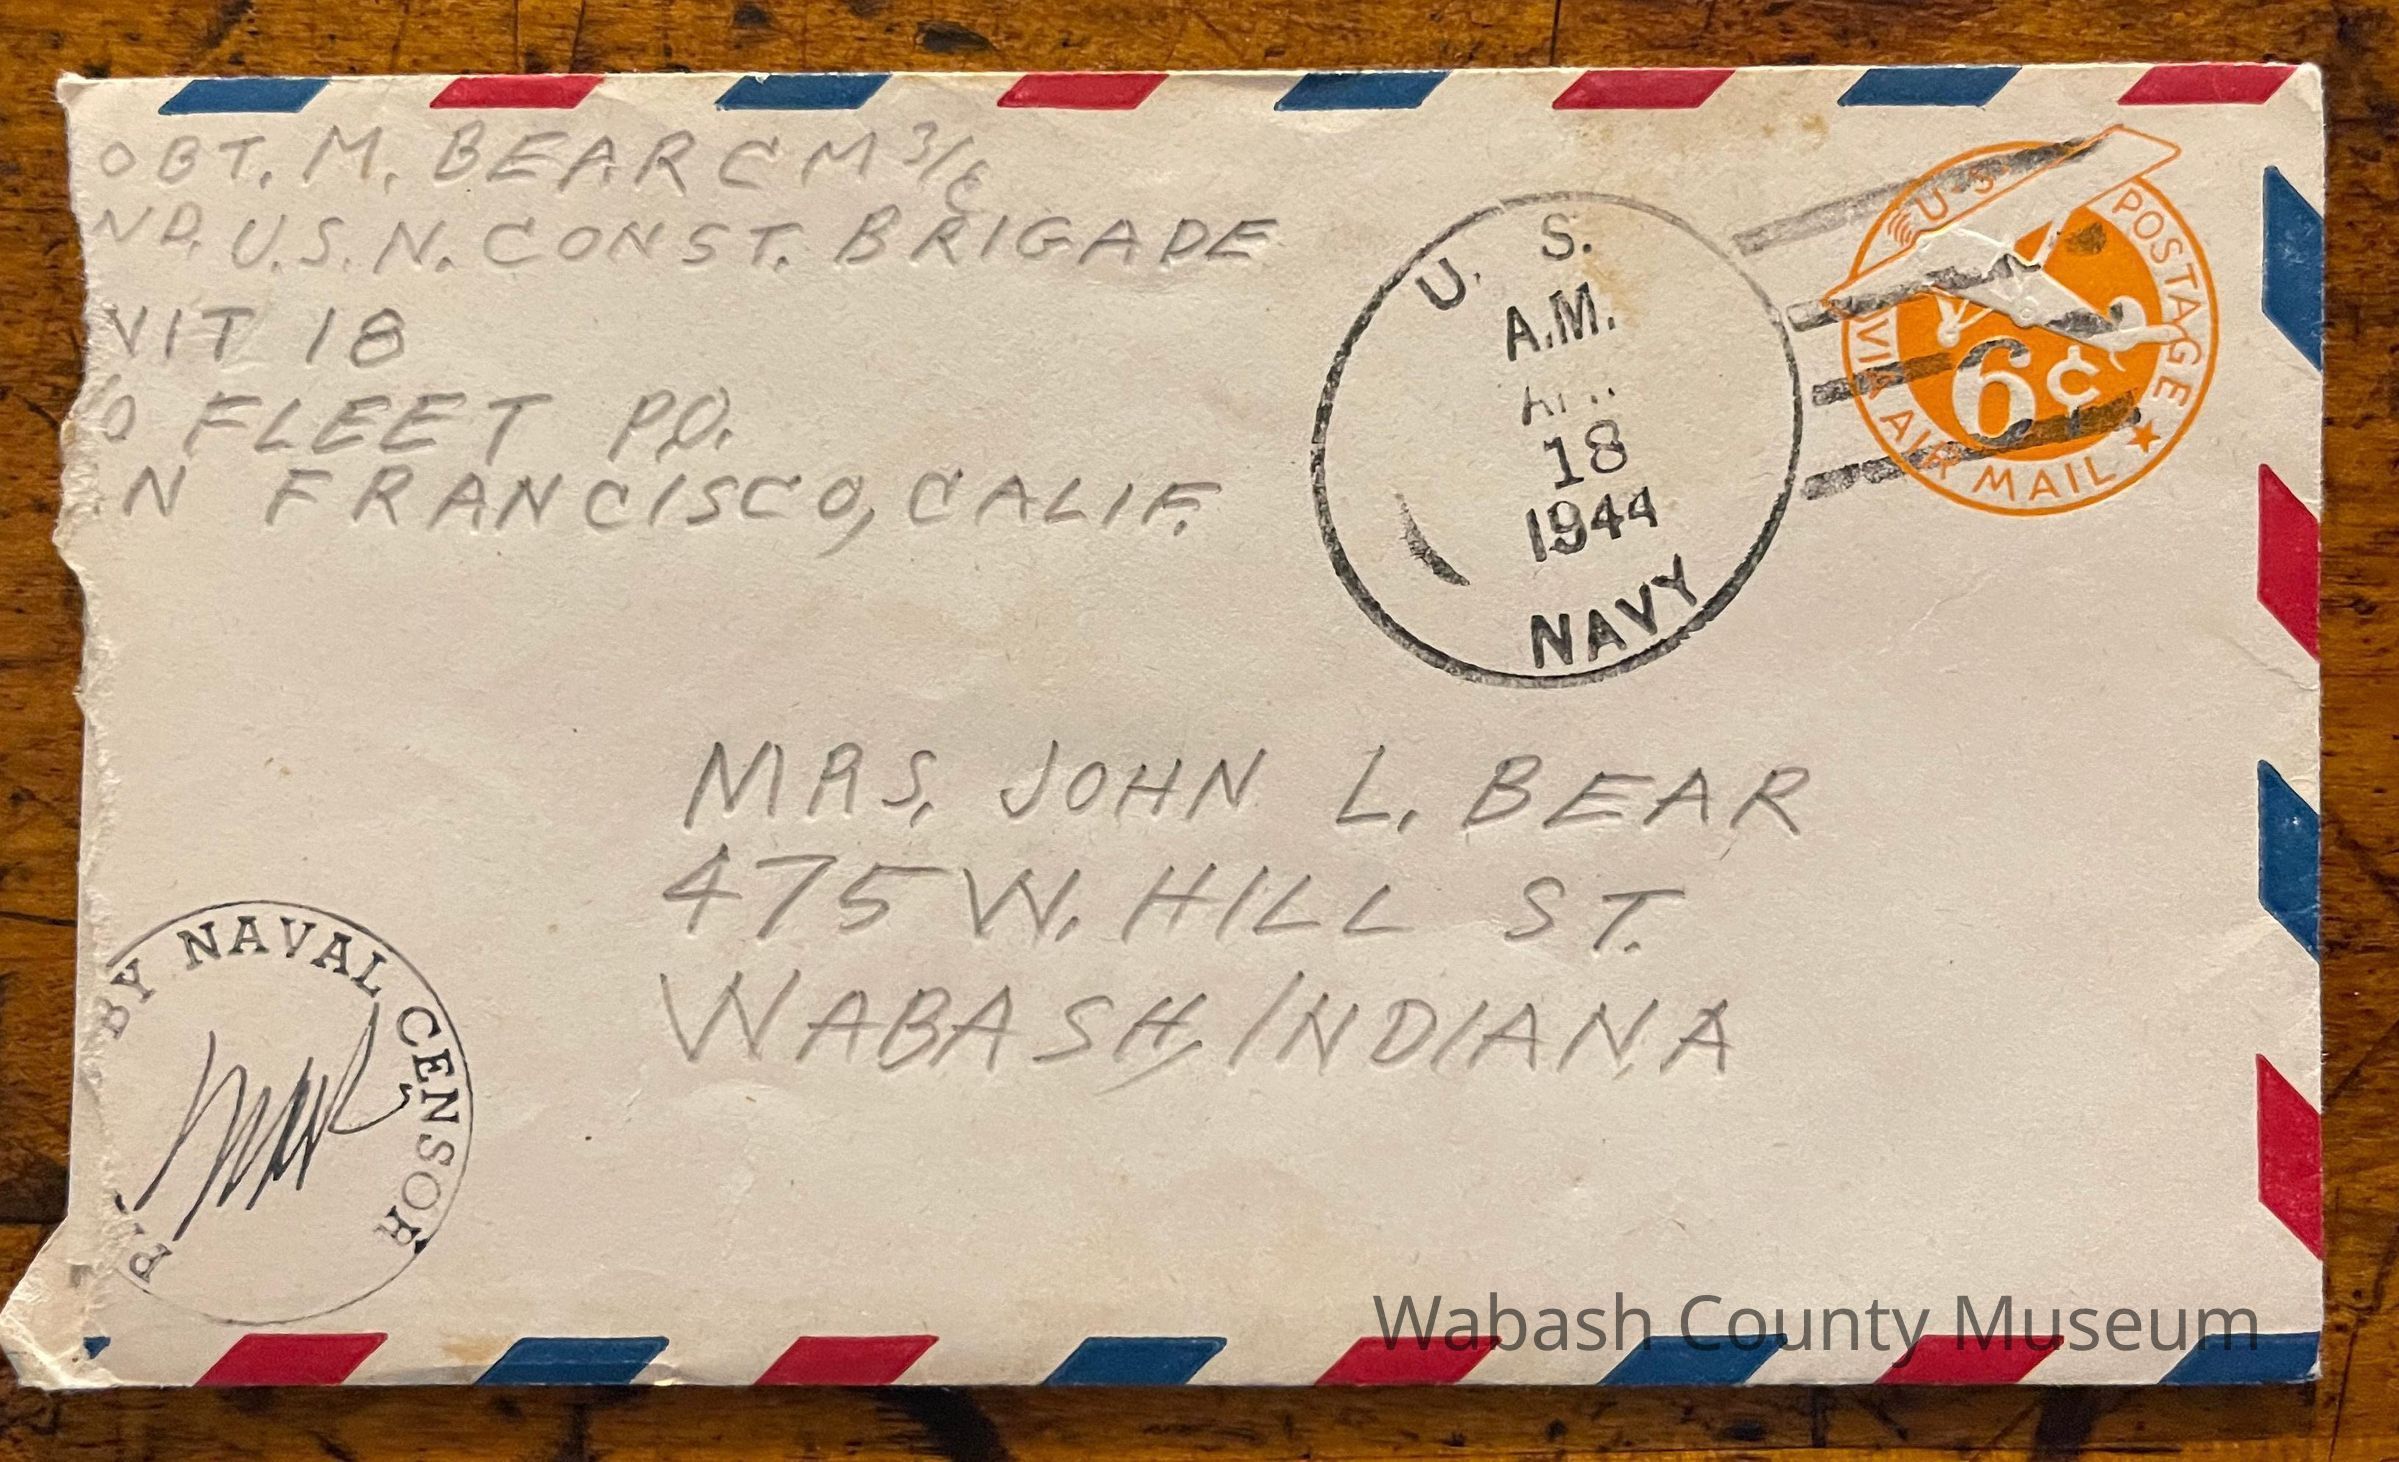 OBT. M. BEAR CM 3/c
ND. U.S.N. CONST. BRIGADE
NIT 18
/O FLEET PO.
N FRANCISCO, CALIF.
U. S.
A.M.
18
1944
NAVY
U.S. POSTAGE
6¢
VIA AIR MAIL
MRS. JOHN L. BEAR
475 W. HILL ST.
WABASH, INDIANA
BY NAVAL CENSOR
Wabash County Museum